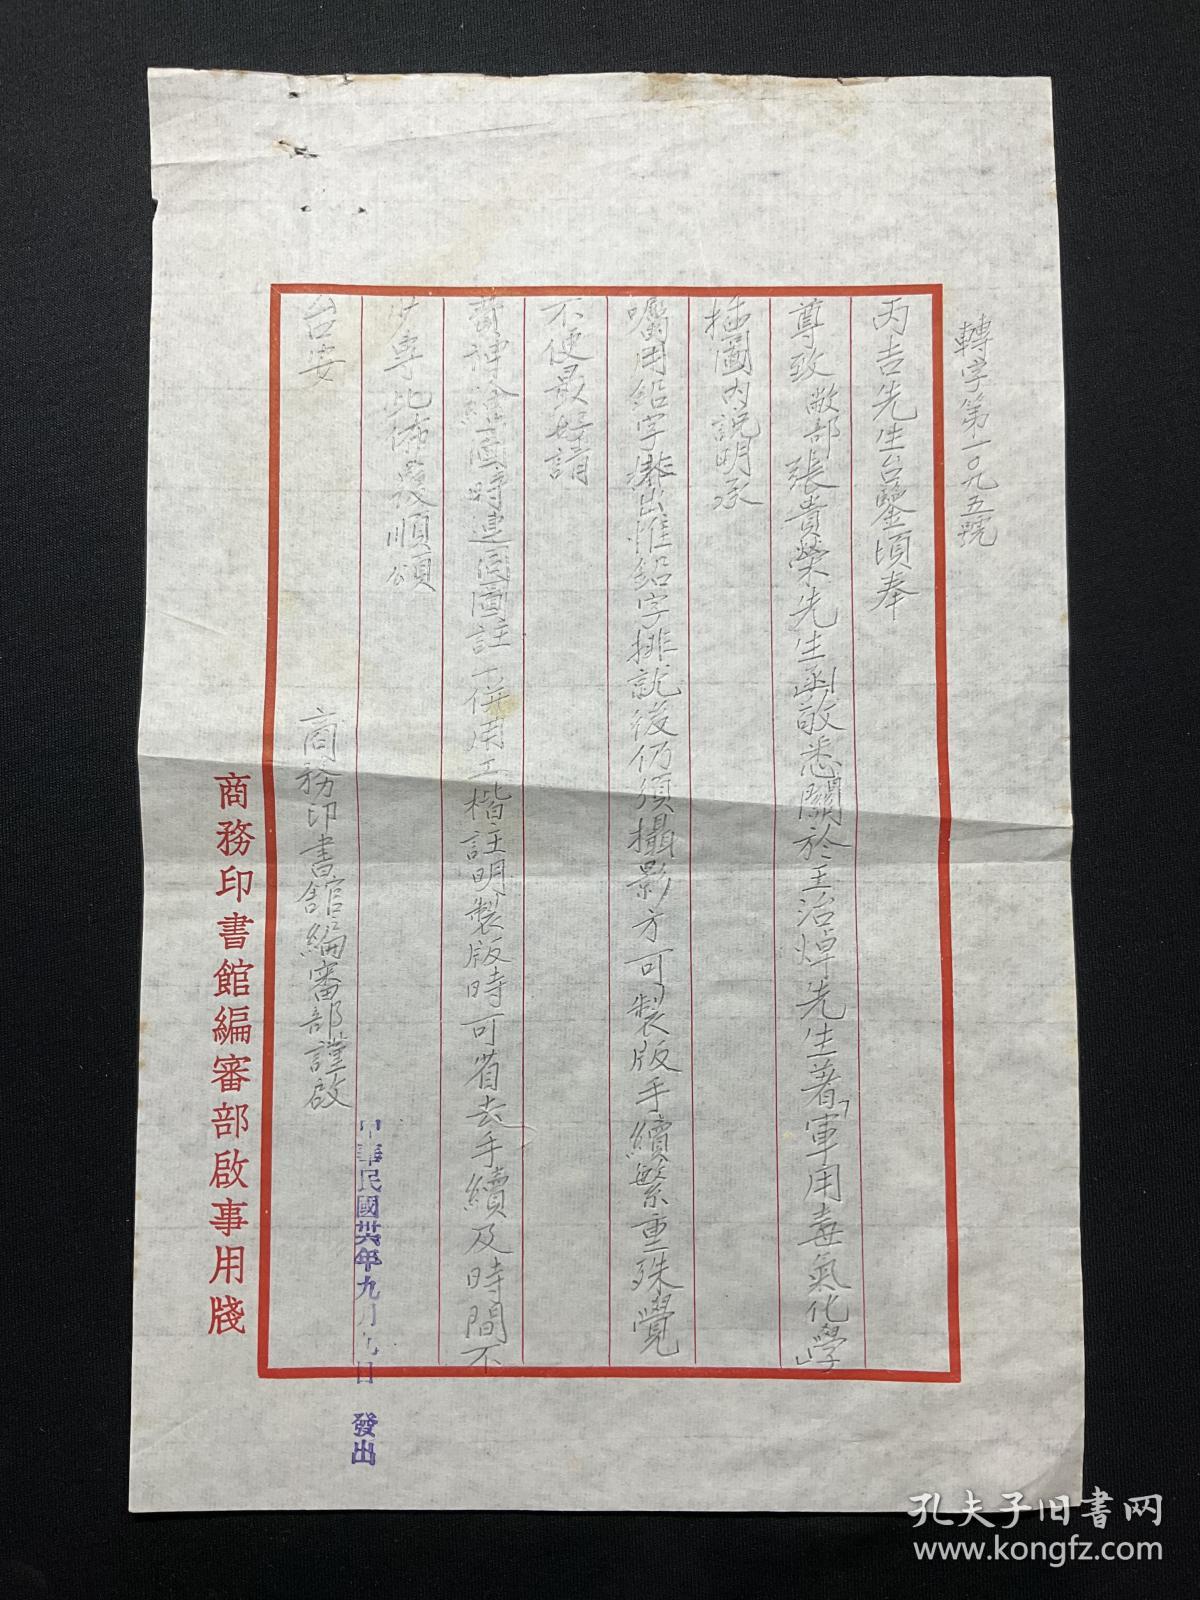 轉字第一〇九五號
丙吉先生台鑒頃奉
尊致敝部張貴榮先生函敬悉關於王治焯先生著「軍用毒氣化學」
插圖內說明承
囑用鉛字排出惟鉛字排就後仍須攝影方可製版手續繁重殊覺
不便最好請
費神繪圖時連同圖註一併用工楷註明製版時可省去手續及時間不
少專此佈復順頌
台安
商務印書館編審部謹啟
中華民國卅六年九月九日 發出
商務印書館編審部啟事用牋
孔夫子旧书网
www.kongfz.com